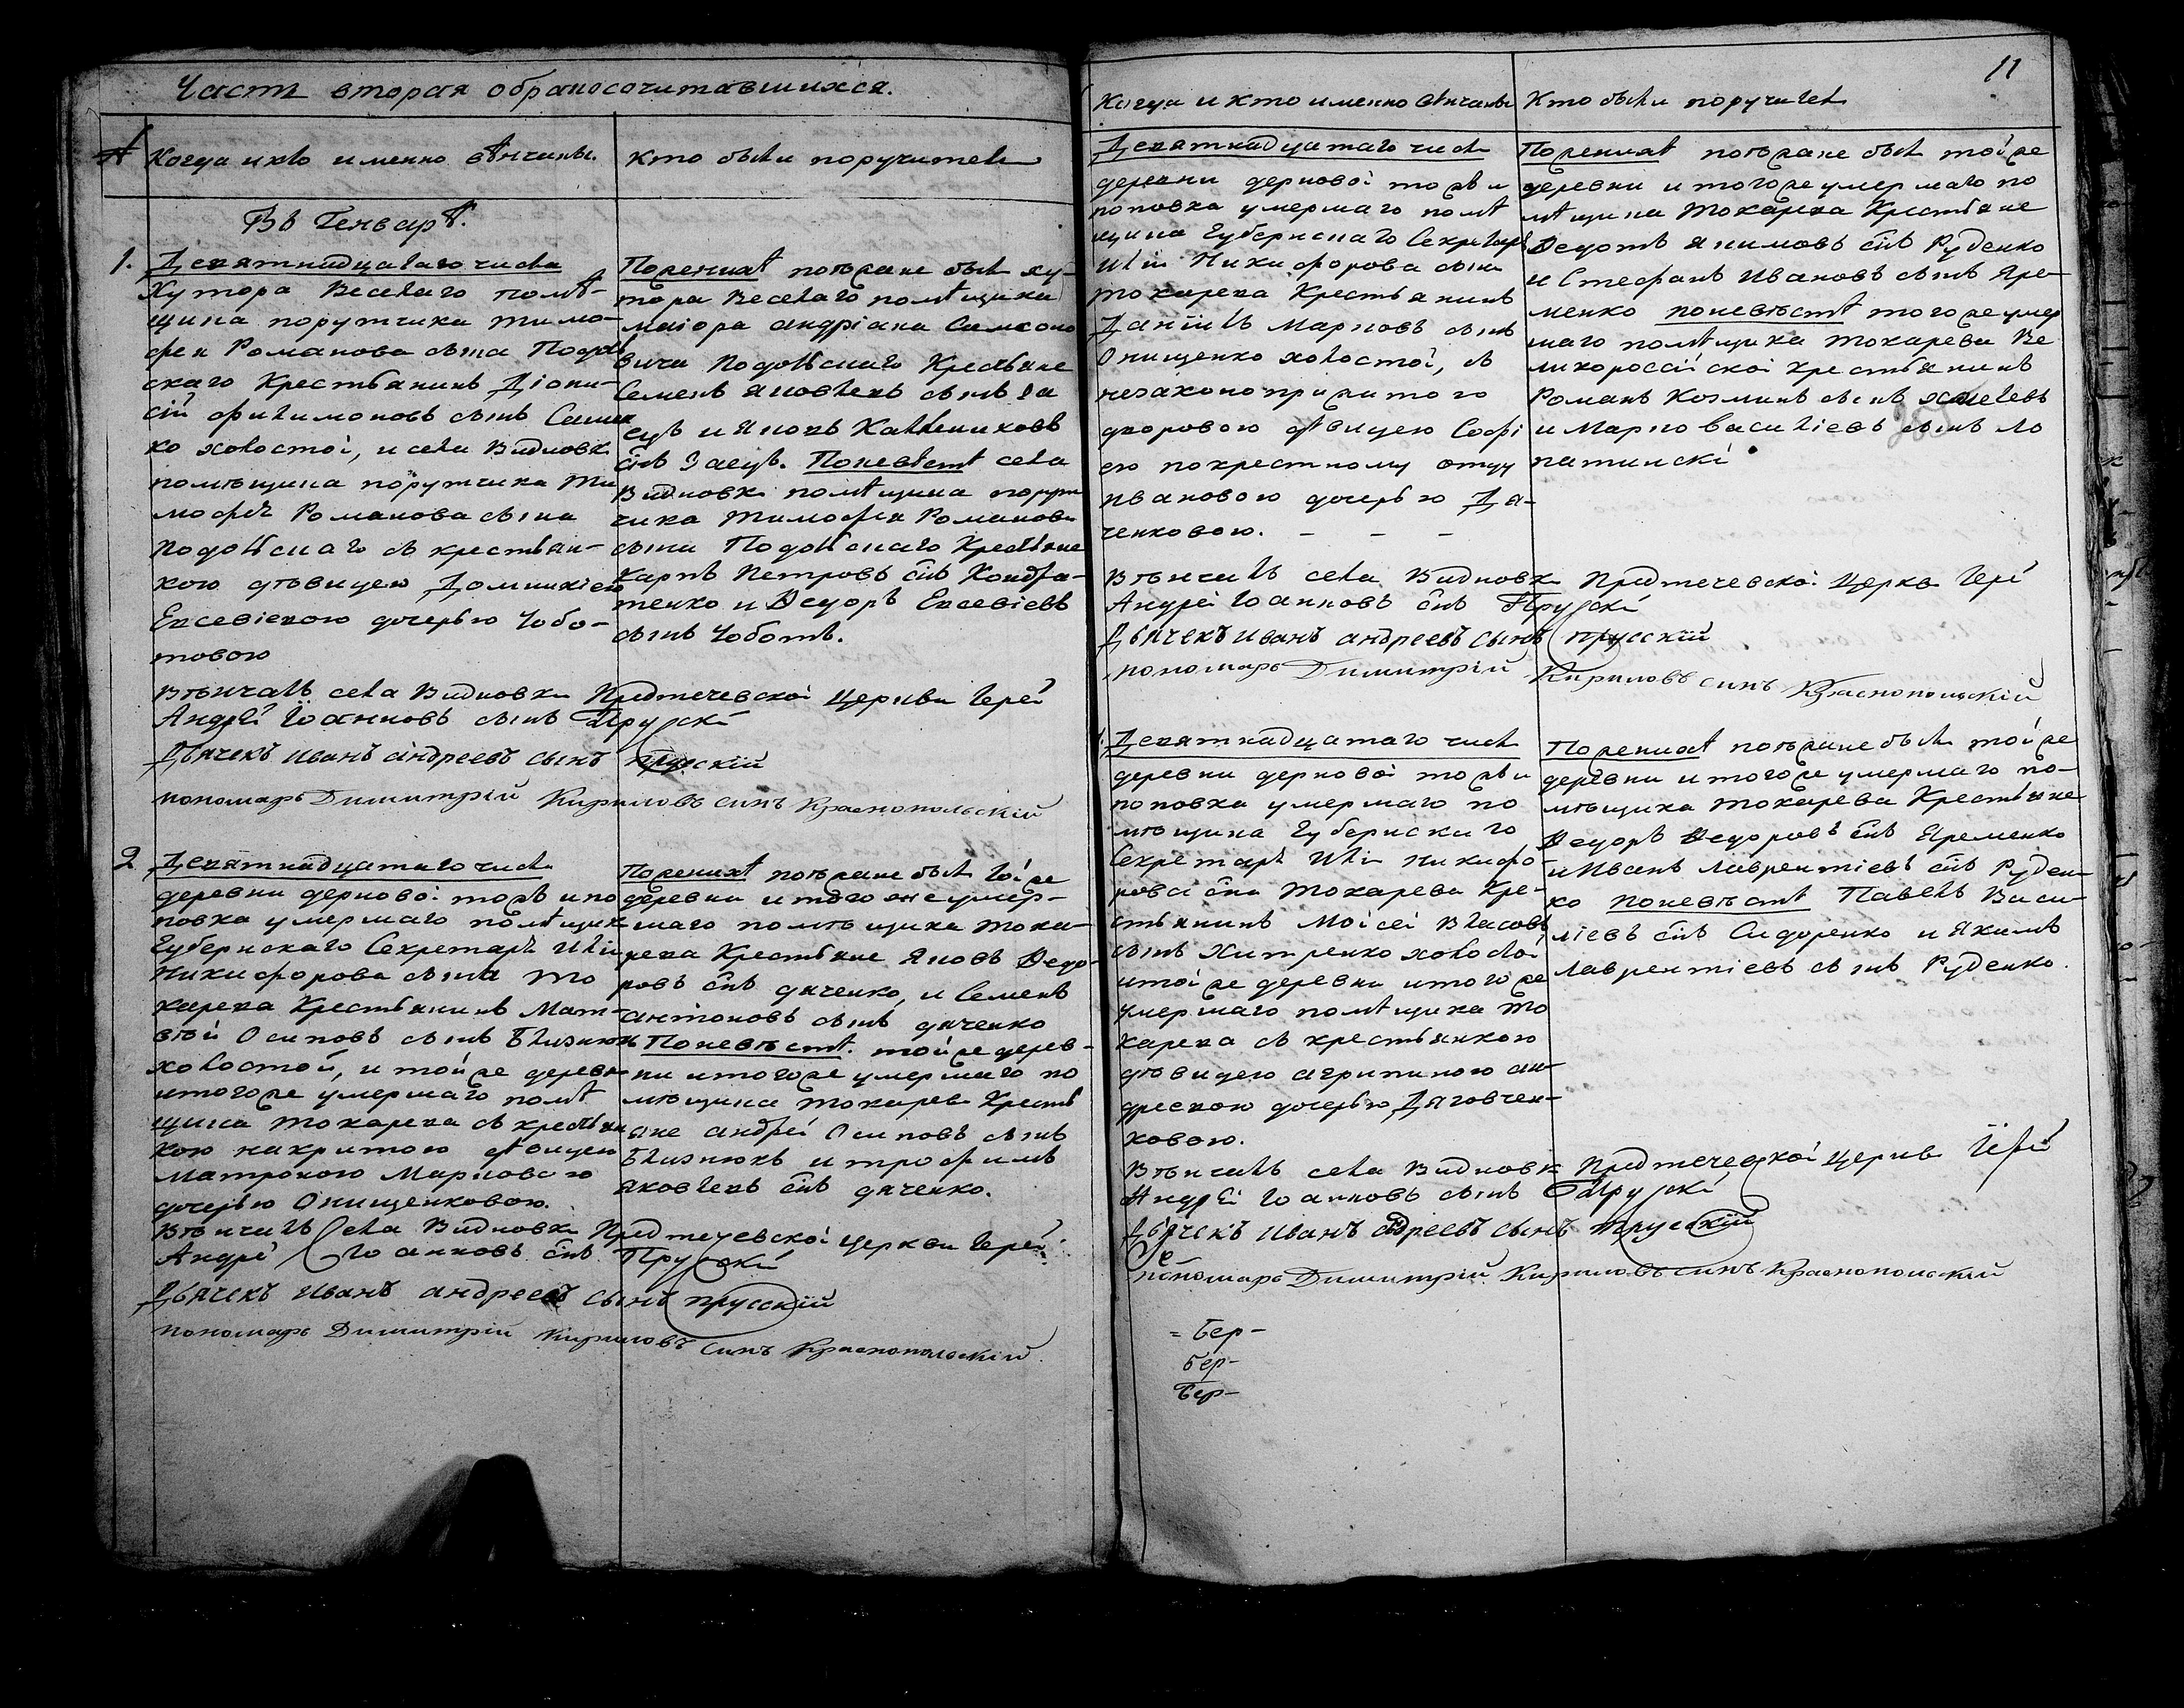 Часть вторая обракосочитавшихся.
№ Когда и кто именно вѣнчаны.
Кто были поручители
Въ Генварѣ.
1. Девятнадцатаго числа
Хутора Веселаго помѣ-
щика порутчика Тимо-
фея Романова сына Подоль
скаго Крестьянинъ Діони-
сій Филимоновъ сынъ
ко холостой, и села Видновки
помѣщика порутчика Ти
мофея Романова сына
Подольскаго съ крестьян-
кою дѣвицею Домникіею
Евсевіевою дочерью Чобо-
товою
Поженихѣ поъзжане были ху-
тора Веселаго помѣщика
маіора Андріана Самсоно
вича Подольскаго Крестьяне
Семенъ Яковлевъ сынъ За
ецъ и Яковъ Калениковъ
сынъ Заецъ. Поневѣстѣ села
Видновки помѣщика порут
чика Тимофея Романова
сына Подольскаго Крестьяне
Карпъ Петровъ сынъ Кондра-
тенко и Ѳедоръ Евсевіевъ
сынъ Чоботъ.
Вѣнчалъ села Видновки Предтечевской Церкви Іерей
Андрей Іоанновъ сынъ Прускій
Дьячекъ Иванъ андреевъ сынъ прусскій
пономарь Димитрій Кириловъ синъ Краснопольскій
2 Девятнадцатаго числа
деревни дерновой тожъ и по
повка умершаго помѣщика
Губернскаго Секретаря Иліи
Никифорова сына То
карева Крестьянинъ Мат-
вѣй Осиповъ сынъ Близнюкъ
холостой, и тойже деревни
итогоже умершаго помѣ
щика Токарева съ крестьян
кою накритою дѣвицею
Матроною Марковою
дочерью Онищенковою.
Поженихѣ поъзжане были тойже
деревни и того же умер-
шаго помѣщика Тока-
рева Крестьяне Яковъ Ѳедо-
ровъ сынъ дяченко, и Семенъ
антоновъ сынъ дяченко
Поневѣстѣ. тойже дерев-
ни итогоже умершаго по
мѣщика Токарева Кресть
яне андрей Осиповъ сынъ
Близнюкъ и трофимъ
Яковлевъ сынъ дяченко.
Вѣнчалъ села Видновки Предтечевской Церкви Іерей
Андрей Іоанновъ сынъ Прускій
Дьячекъ Иванъ андреевъ сынъ прусскій
пономарь Димитрій Кириловъ синъ Краснопольскій
11
Когда и кто именно вѣнчаны
Кто были поручители
Девятнадцатаго числа
деревни дерновой тожъ и
поповка умершаго помѣ
щика Губернскаго Секретаря
Иліи Никифорова сына
Токарева Крестьянинъ
Даніилъ Марковъ сынъ
Онищенко холостой, съ
незаконоприжитого
дворовою дѣвицею Софі
ею покрестному отцу
Ивановою дочерью Дя-
ченковою. - - -
Поженихѣ поъзжане были тойже
деревни и тогоже умершаго по
мѣщика Токарева Крестьяне
Ѳедотъ Якимовъ сынъ Руденко
и Стефанъ Ивановъ сынъ Яре-
менко поневѣстѣ тогоже умер
шаго помѣщика Токарева Ве
ликоросcійской крестьянинъ
Романъ Козминъ сынъ
и Марко Василіевъ сынъ Ло
патинскі
Вѣнчалъ села Видновки Предтечевской Церкви Іерей
Андрей Іоанновъ сынъ Прускій
Дьячекъ Иванъ андреевъ сынъ прусскій
пономарь Димитрій Кириловъ синъ Краснопольскій
Девятнадцатаго числа
деревни дерновой тожъ и
поповка умершаго по
мѣщика Губернскаго
Секретаря Иліи Никифо-
рова сына Токарева Кре-
стьянинъ Моісей Власовъ
сынъ Хитренко холостой
итойже деревни итогоже
умершаго помѣщика То
карева съ крестьянкою
дѣвицею агрипиною ан-
дреевою дочерью Дяговчен-
ковою.
Поженихѣ поъзжане были тойже
деревни и тогоже умершаго по-
мѣщика Токарева Крестьяне
Ѳедоръ Ѳедоровъ сынъ Яременко
и Иванъ Лаврентіевъ сынъ Руден-
ко поневѣстѣ Павелъ Васи-
ліевъ сынъ Сидоренко и Якимъ
Лаврентіевъ сынъ Руденко.
Вѣнчалъ села Видновки Предтечевской Церкви Іерей
Андрей Іоанновъ сынъ Прускій
Дьячекъ Иванъ андреевъ сынъ прусскій
пономарь Димитрій Кириловъ синъ Краснопольскій
= Бер-
Бер-
Бер-